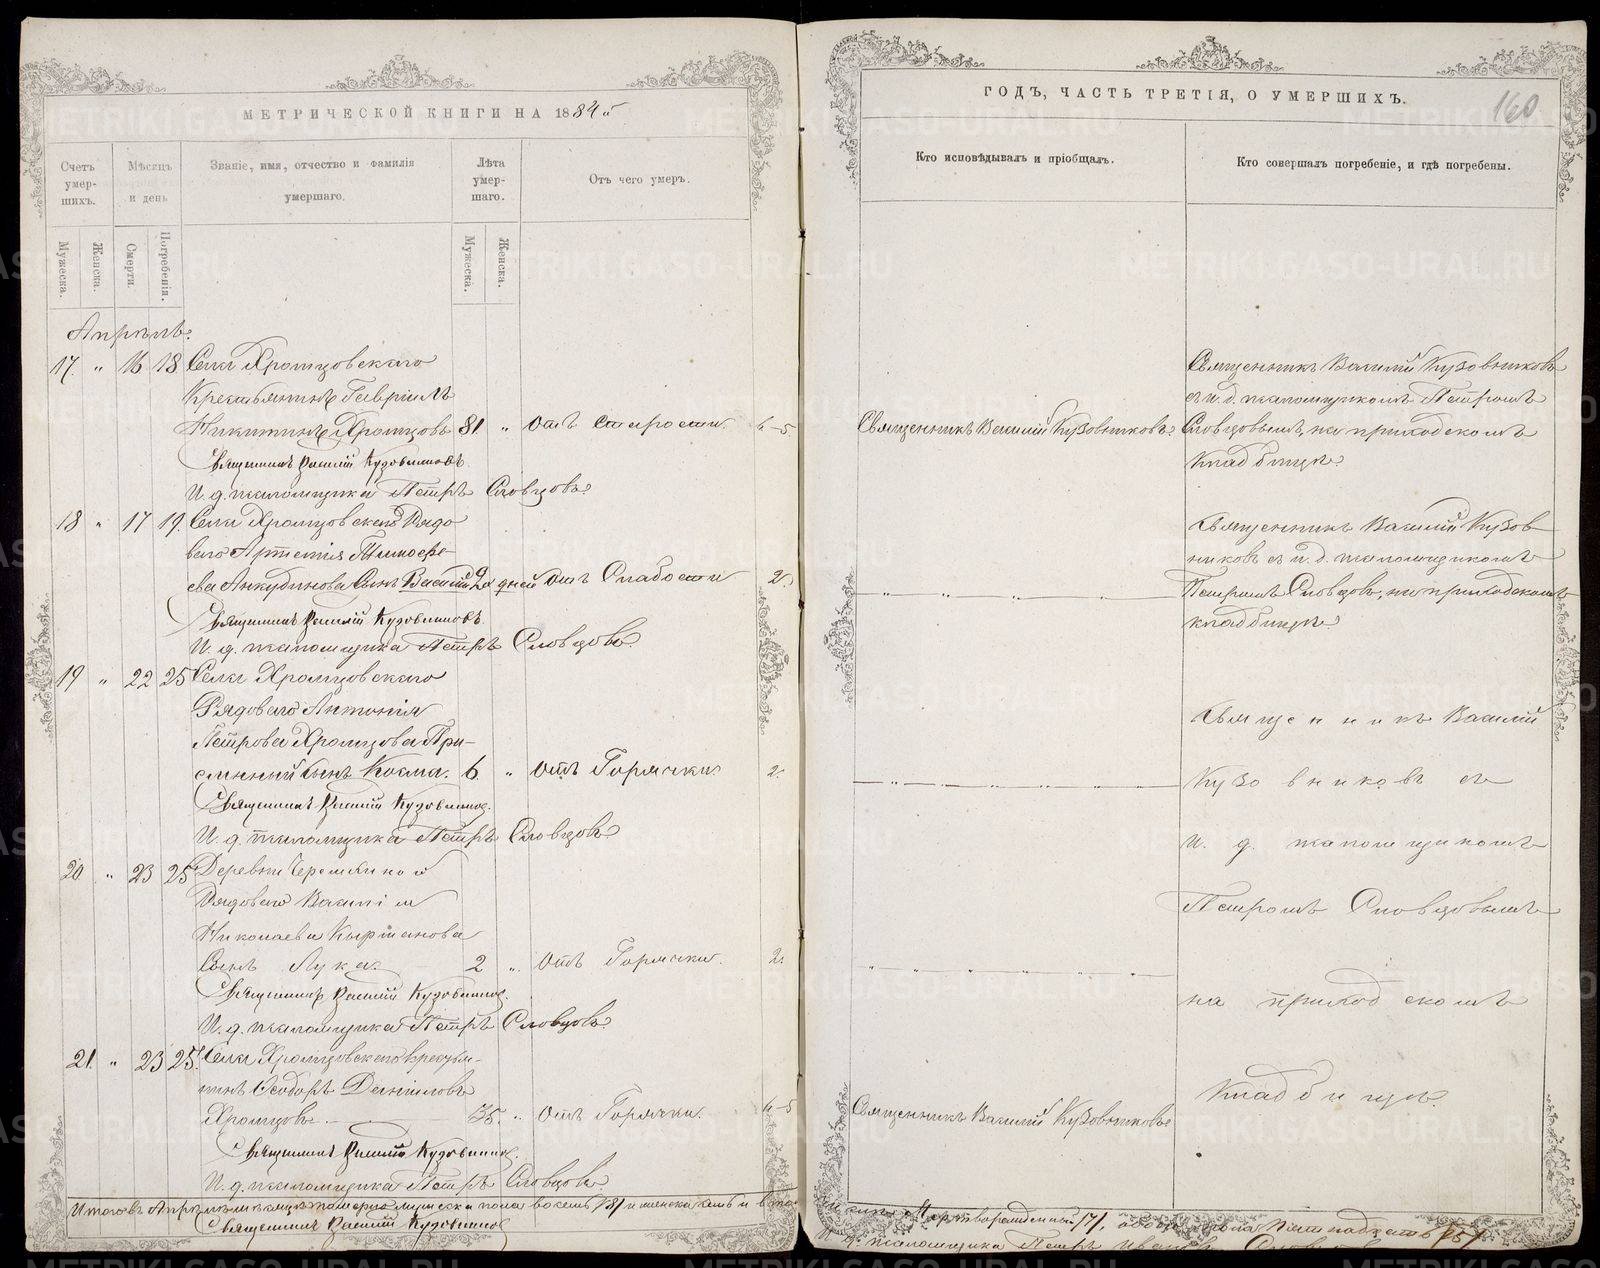 МЕТРИЧЕСКОЙ КНИГИ НА 1884й
Счетъ умерших.
Мѣсяцъ и день
Званіе, имя, отчество и фамилія умершаго.
Лѣта умершаго.
Отъ чего умеръ.
Мужеска.
Женска.
Смерти.
Погребенія.
Мужеска.
Женска.
Апрѣль.
17. " 16 18 Села Хромцовскаго
Крестьянинъ Гавріилъ
Никитинъ Хромцовъ 81 " Отъ старости
Священникъ Василій Кузовниковъ
И. д. псаломщика Петръ Словцовъ
18 " 17 19. Села Хромцовскаго Рядо
ваго Артемія Тимофе-
ева Анкудинова Сынъ Василій дней Отъ Слабости 2.
Священникъ Василій Кузовниковъ
И. д. псаломщика Петръ Словцовъ
19 " 22 25 Села Хромцовскаго
Рядоваго Антонія
Петрова Хромцова Прі-
емный сынъ Косма. 6 " Отъ Горячки 2.
Священникъ Василій Кузовниковъ
И. д. псаломщика Петръ Словцовъ
20 " 23 25 Деревни
Рядоваго Василія
Николаева
Сынъ Лука. 2 " Отъ Горячки. 2.
Священникъ Василій Кузовниковъ
И. д. псаломщика Петръ Словцовъ
21. " 23 25. Села Хромцовскаго крестья-
нинъ Ѳеодоръ Даніиловъ
Хромцовъ 35. " Отъ Горячки.
Священникъ Василій Кузовниковъ
И. д. псаломщика Петръ Словцовъ
Итого въ Апрѣлѣ мѣсяцѣ померло мужеска пола восемь /8/ и женска семь и
Священникъ Василій Кузовниковъ
ГОДЪ, ЧАСТЬ ТРЕТІЯ, О УМЕРШИХЪ.
160
Кто исповѣдывалъ и пріобщалъ.
Кто совершалъ погребеніе, и гдѣ погребены.
Священникъ Василій Кузовниковъ.
Священникъ Василій Кузовниковъ
съ и. д. псаломщикомъ Петромъ
Словцовымъ, на приходскомъ
кладбищѣ.
Священникъ Василій Кузов
никовъ съ и. д. псаломщикомъ
Петромъ Словцовымъ, на приходскомъ
кладбищѣ.
Священникъ Василій
Кузовниковъ съ
и. д. псаломщикомъ
Петромъ Словцовымъ
на приходскомъ
Кладбищѣ.
Священникъ Василій Кузовниковъ
обоего пола пятнадцать /15/
псаломщика Петръ
METRIKI.GASO-URAL.RU